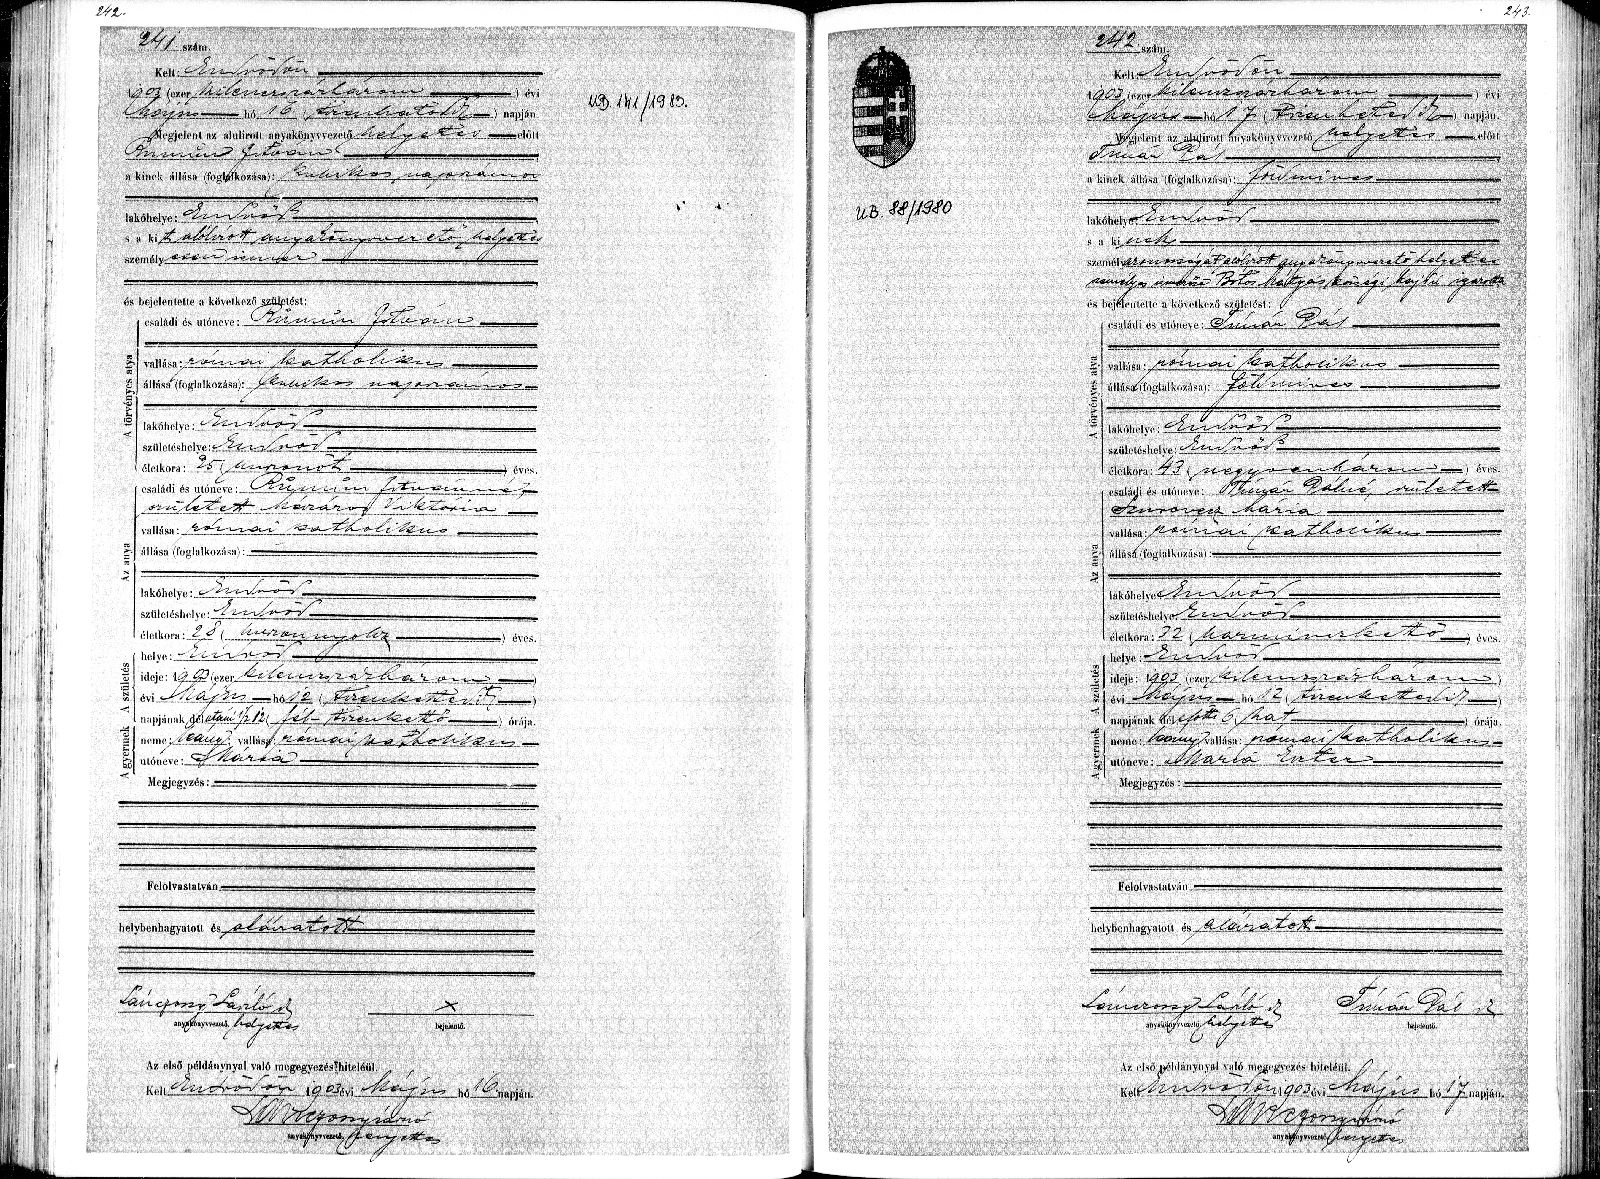 242.
241 szám.
Kelt: Endrődön
1903 (ezer kilenczszázhárom) évi
Május hó 16 (tizenhatodik) napján
Megjelent az alulirott anyakönyvvezető helyettes előtt
István
a kinek állása (foglalkozása): kubikos napszámos
lakóhelye: Endrőd
s a kit alólirott anyakönyvvezető helyettes
személyesen ismer
és bejelentette a következő születést:
A törvényes atya
családi és utóneve: István
vallása: római katholikus
állása (foglalkozása): kubikos napszámos
lakóhelye: Endrőd
születéshelye: Endrőd
életkora: 25 (huszonöt) éves.
Az anya
családi és utóneve: Istvánné
született Viktória
vallása: római katholikus
állása (foglalkozása):
lakóhelye: Endrőd
születéshelye: Endrőd
életkora: 28 (huszonnyolcz) éves.
A születés
helye: Endrőd
ideje: 1903 (ezer kilenczszázhárom)
évi Május hó 12 (tizenkettedik)
napjának délutáni ½12 (fél tizenkettő) órája.
A gyermek
neme: leány vallása: római katholikus
utóneve: Mária
Megjegyzés:
Felolvastatván
helybenhagyatott és aláiratott
László
anyakönyvvezető helyettes
x
bejelentő.
Az első példánynyal való megegyezés hiteléül.
Kelt Endrődön 1903 évi Május hó 16 napján.
anyakönyvvezető, helyettes
UB. 141/1983.
243.
242 szám.
Kelt: Endrődön
1903 (ezer kilenczszázhárom) évi
Május hó 17 (tizenhetedik) napján.
Megjelent az alulirott anyakönyvvezető helyettes előtt
Tímár Pál
a kinek állása (foglalkozása): földmíves
lakóhelye: Endrőd
s a kinek
személyazonosságát alólirott anyakönyvvezető helyettes
személyes ismerőse községi
és bejelentette a következő születést:
A törvényes atya
családi és utóneve: Tímár Pál
vallása: római katholikus
állása (foglalkozása): földmíves
lakóhelye: Endrőd
születéshelye: Endrőd
életkora: 43 (negyvenhárom) éves.
Az anya
családi és utóneve: Tímár Pálné, született
Mária
vallása: római katholikus
állása (foglalkozása):
lakóhelye: Endrőd
születéshelye: Endrőd
életkora: 32 (harminczkettő) éves.
A születés
helye: Endrőd
ideje: 1903 (ezer kilenczszázhárom)
évi Május hó 12 (tizenkettedik)
napjának délelőtti 6 (hat) órája.
A gyermek
neme: leány vallása: római katholikus
utóneve: Mária Eszter
Megjegyzés:
Felolvastatván
helybenhagyatott és aláiratott
László
anyakönyvvezető helyettes
Tímár Pál
bejelentő.
Az első példánynyal való megegyezés hiteléül.
Kelt Endrődön 1903 évi Május hó 17 napján.
anyakönyvvezető, helyettes
UB. 88/1980